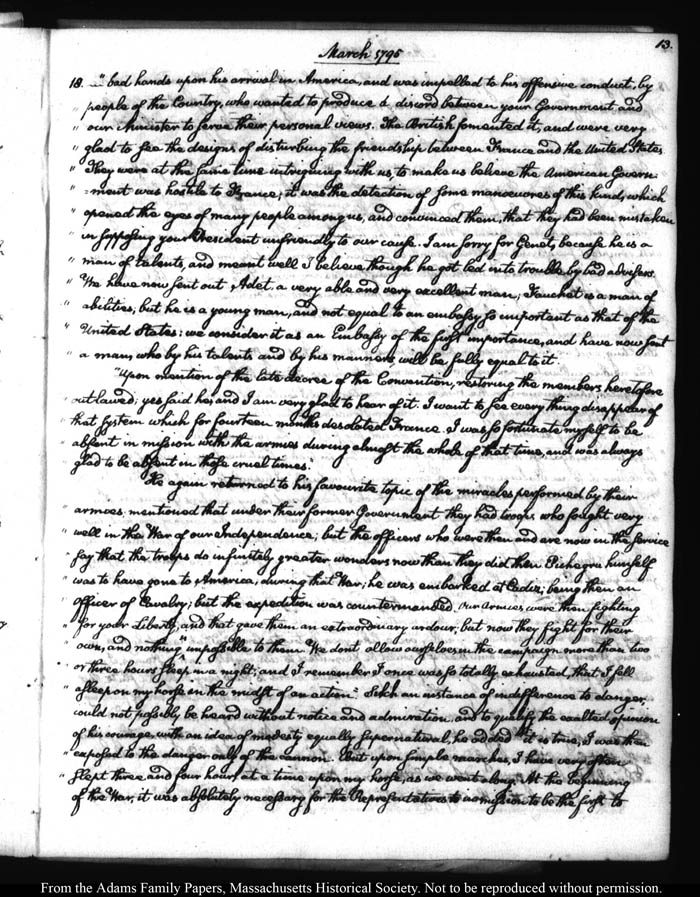 13.
March 1795
18. — " bad hands upon his arrival in America, and was impelled to his offensive conduct, by
" people of the Country, who wanted to produce a discord between your Government and
" our Minister to serve their personal views. The British fomented it, and were very
" glad to see the designs of disturbing the friendship between France and the United States
" They were at the same time intriguing with us, to make us believe the American Govern-
" =ment was hostile to France; it was the detection of some manœuvres of this kind, which
" opened the eyes of many people among us, and convinced them, that they had been mistaken
" in supposing your President unfriendly to our cause. I am sorry for Genet, because he is a
" man of talents, and meant well I believe though he got led into trouble by bad advisers.
" We have now sent out Adet a very able and very excellent man; Fauchet is a man of
" abilities; but he is a young man, and not equal to an embassy so important as that of the
" United States: we consider it as an Embassy of the first importance, and have now sent
" a man, who by his talents and by his manners will be fully equal to it.
"Upon mention of the late decree of the Convention, restoring the members heretofore
outlawed; yes said he, and I am very glad to hear of it. I want to see every thing disappear of
" that system which for fourteen months desolated France. I was so fortunate myself to be
" absent in mission with the armies during almost the whole of that time, and was always
glad to be absent in those cruel times."
He again returned to his favourite topic of the miracles performed by their
armies, mentioned that under their former Government they had troops, who fought very
well in the War of our Independence; but the officers who were then and are now in the service
" say that the troops do infinitely greater wonders now than they did then Pichegru himself
" was to have gone to America, during that War; he was embarked at Cadiz; being then an
" Officer of Cavalry; but the expedition was countermanded. Our Armies were then fighting
" for your Liberty, and that gave them an extraordinary ardour; but now they fight for their
" own, and nothing " impossible to them We dont allow ourselves in the campaign more than two
" or three hours sleep in a night; and I remember I once was so totally exhausted, that I fell
" asleep on my horse in the midst of an action." Such an instance of indifference to danger,
could not possibly be heard without notice and admiration, and to qualify the exalted opinion
of his courage with an idea of modesty equally supernatural, he added "it is true, I was then
" exposed to the danger only of the cannon. But upon simple marches, I have very often
" slept three and four hours at a time upon my horse, as we went along. At the beginning
of the War, it was absolutely necessary for the Representatives in mission to be the first to
From the Adams Family Papers, Massachusetts Historical Society. Not to be reproduced without permission.